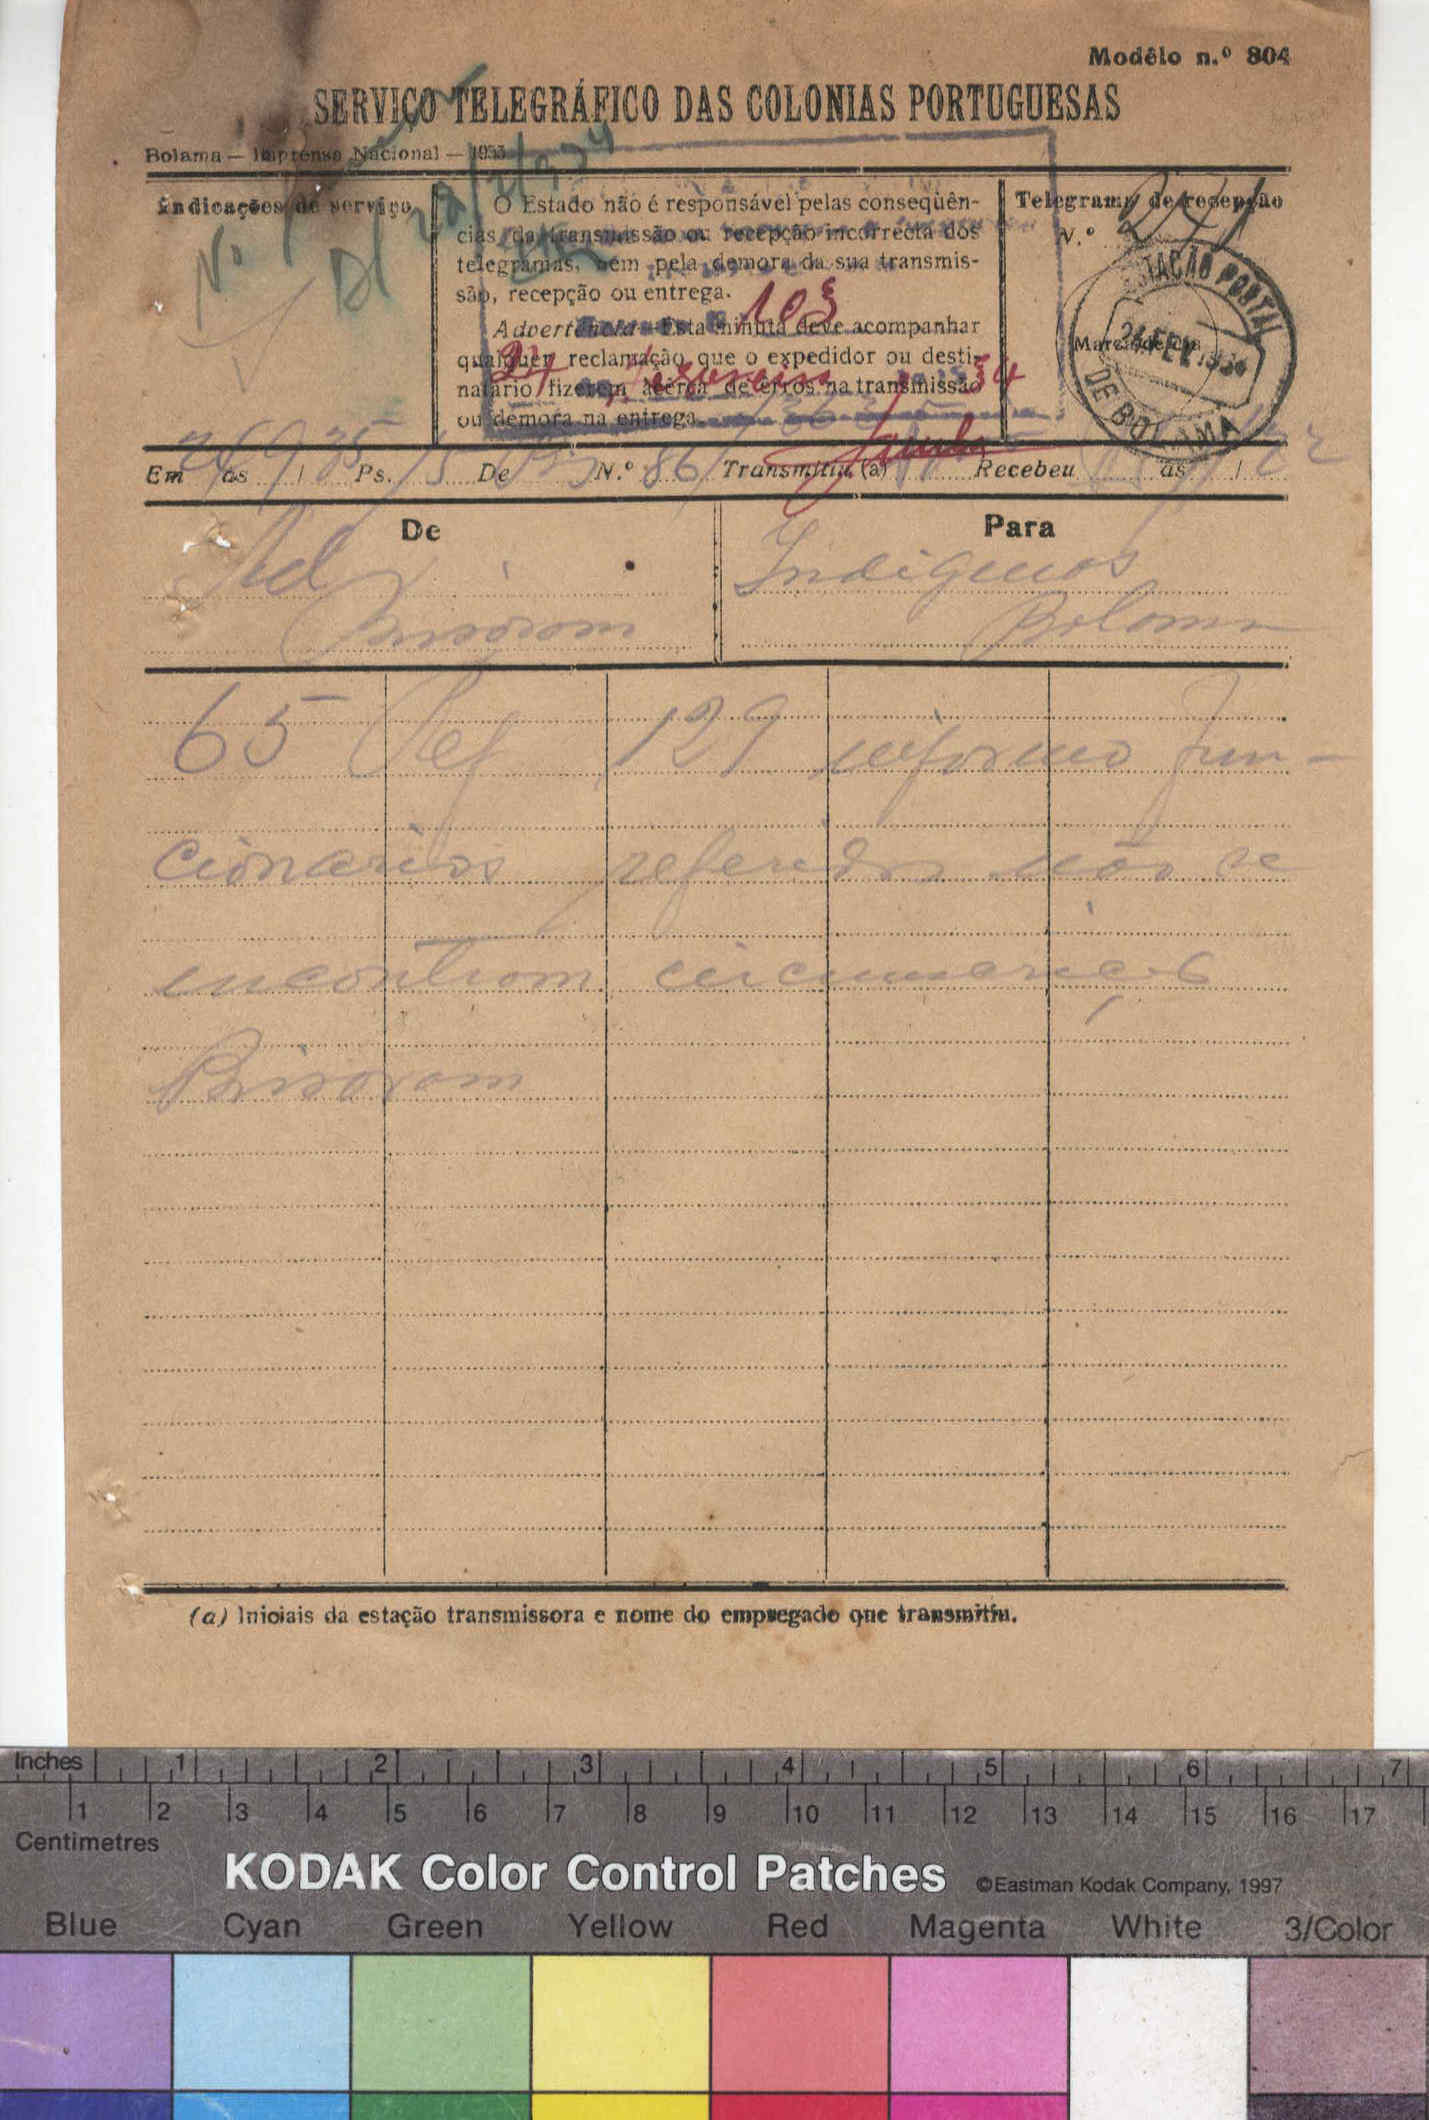 Modêlo n.º 804
SERVIÇO TELEGRÁFICO DAS COLONIAS PORTUGUESAS
Bolama — Imprensa Nacional — 1933
Indicações de serviço
Nº
O Estado não é responsável pelas conseqüên-
cias da transmissão ou recepção incorrecta dos
telegramas, bem pela demora da sua transmis-
são, recepção ou entrega.
Advertência—Esta minuta deve acompanhar
qualquer reclamação que o expedidor ou desti-
natário fizerem àcêrca de erros na transmissão
ou demora na entrega.
103
24 Fevereiro 34
Telegrama de recepção
N.º 241
Marca do dia
ESTAÇÃO POSTAL
24 FEV 1934
DE BOLAMA
Em às | Ps. 15 De N.º 86 Transmitiu (a) Recebeu às |
De
Para
Adm
Bissoram
Indigenas
Bolama
65 Ref 129 informo fun-
cionarios referidos não se
encontram circunscrição
Bissoram
(a) Iniciais da estação transmissora e nome do empregado que transmitiu.
Inches 1 2 3 4 5 6 7
1 2 3 4 5 6 7 8 9 10 11 12 13 14 15 16 17
Centimetres
KODAK Color Control Patches ©Eastman Kodak Company, 1997
Blue Cyan Green Yellow Red Magenta White 3/Color